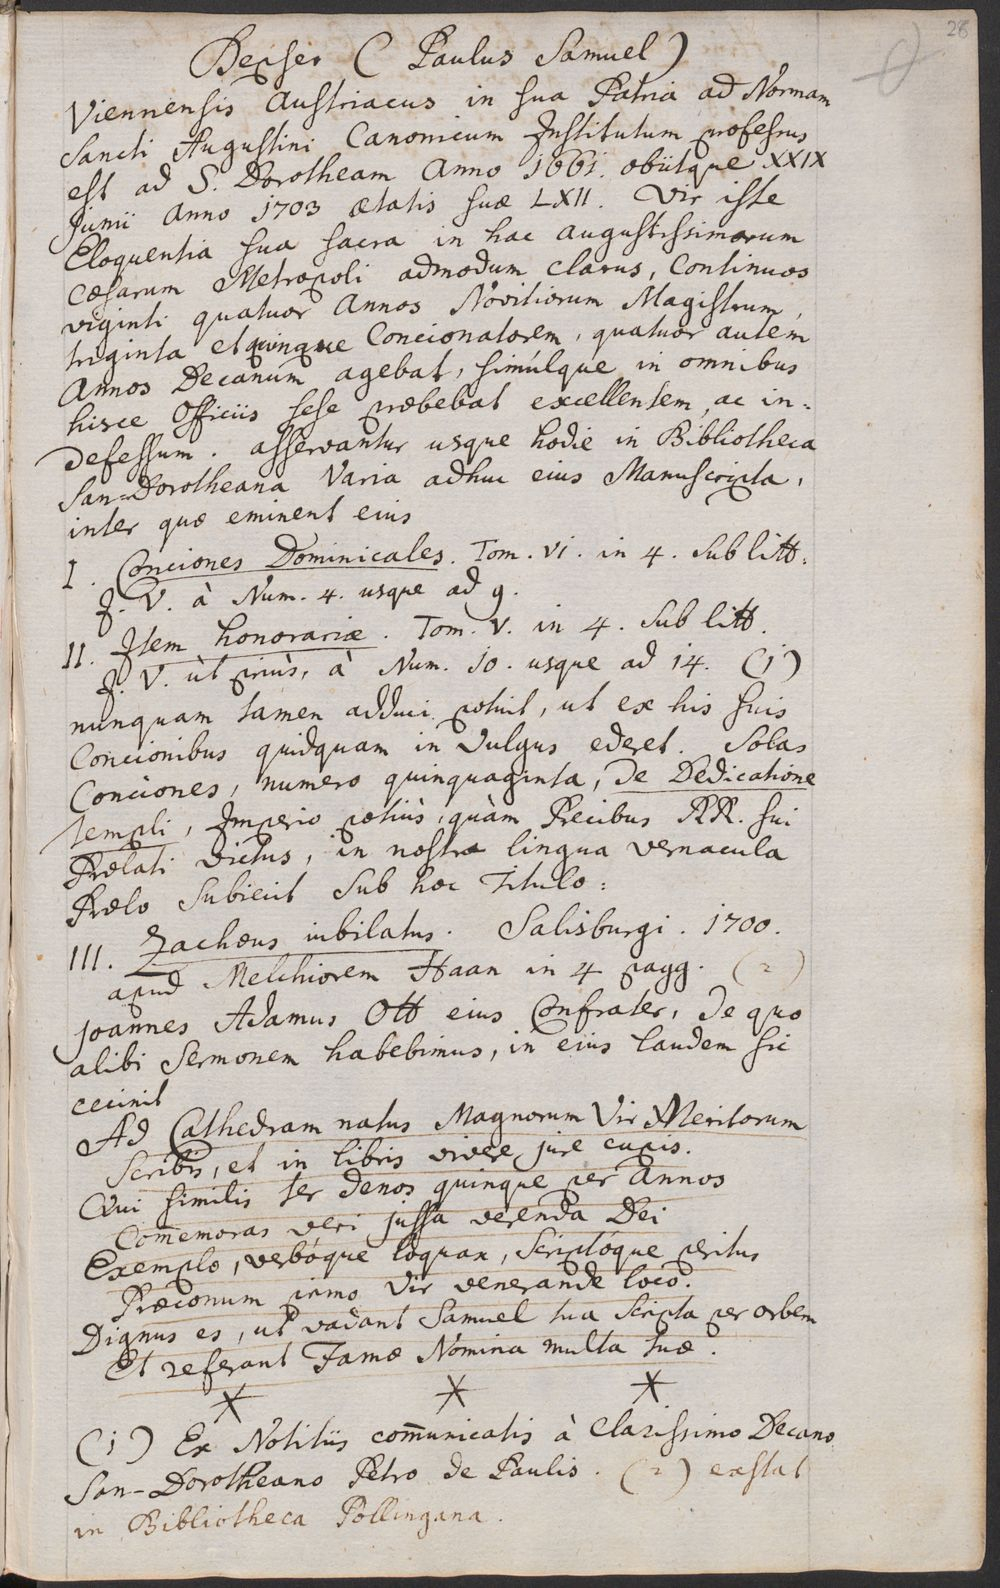 28
Bexser (Paulus Samuel)
Viennensis Austriacus in sua Patria ad Normam
Sancti Augustini Canonicum Institutum professus
est ad S. Dorotheam Anno 1661. obiitque XXIX
Junii Anno 1703 ætatis suæ LXII. Vir iste
Eloquentia sua sacra in hac augustissimorum
Cæsarum Metropoli admodum clarus, Continuos
viginti quatuor Annos Novitiorum Magistrum,
triginta et quinque Concionatorem, quatuor autem
Annos Decanum agebat, simúlque in omnibus
hisce Officiis sese præbebat excellentem, ac in=
defessum. asservantur usque hodie in Bibliotheca
San=Dorotheana Varia adhuc eius Manuscripta,
inter quæ eminent eius
I. Conciones Dominicales. Tom. VI. in 4. Sub litt.
J. V. à Num. 4. usque ad 9.
II. Item honorariæ. Tom. V. in 4. Sub litt.
J. V. ùt priùs, à Num. 10. usque ad 14. (1)
nunquam tamen adduci potuit, ut ex his suis
Concionibus quidquam in Vulgus ederet. Solas
Conciones, numero quinquaginta, de Dedicatione
templi, Imperio potiùs, quàm Precibus RR. sui
Prælati victus, in nostra lingua vernacula
Prælo Subiecit Sub hoc Titulo:
III. Zachæus iubilatus. Salisburgi. 1700.
apud Melchiorem Haan in 4 pagg. (2)
Joannes Adamus Ott eius Confrater, de quo
alibi Sermonem habebimus, in eius laudem sic
cecinit
Ad Cathedram natus Magnorum Vir Meritorum
Scribis, et in libris vivere jure cupis.
Qui similis ter denos quinque per Annos
Com̄emoras veri jussa verenda Dei
Exemplo, verbóque loquax, Scriptóque peritus
Præconum primo Vir venerande loco.
Dignus es, ut vadant Samuel tua Scripta per orbem
Et referant Famæ Nomina multa tuæ.
(1) Ex Notitiis com̄unicatis à Clarissimo Decano
San-Dorotheano Petro de Paulis. (2) exstat
in Bibliotheca Pollingana.